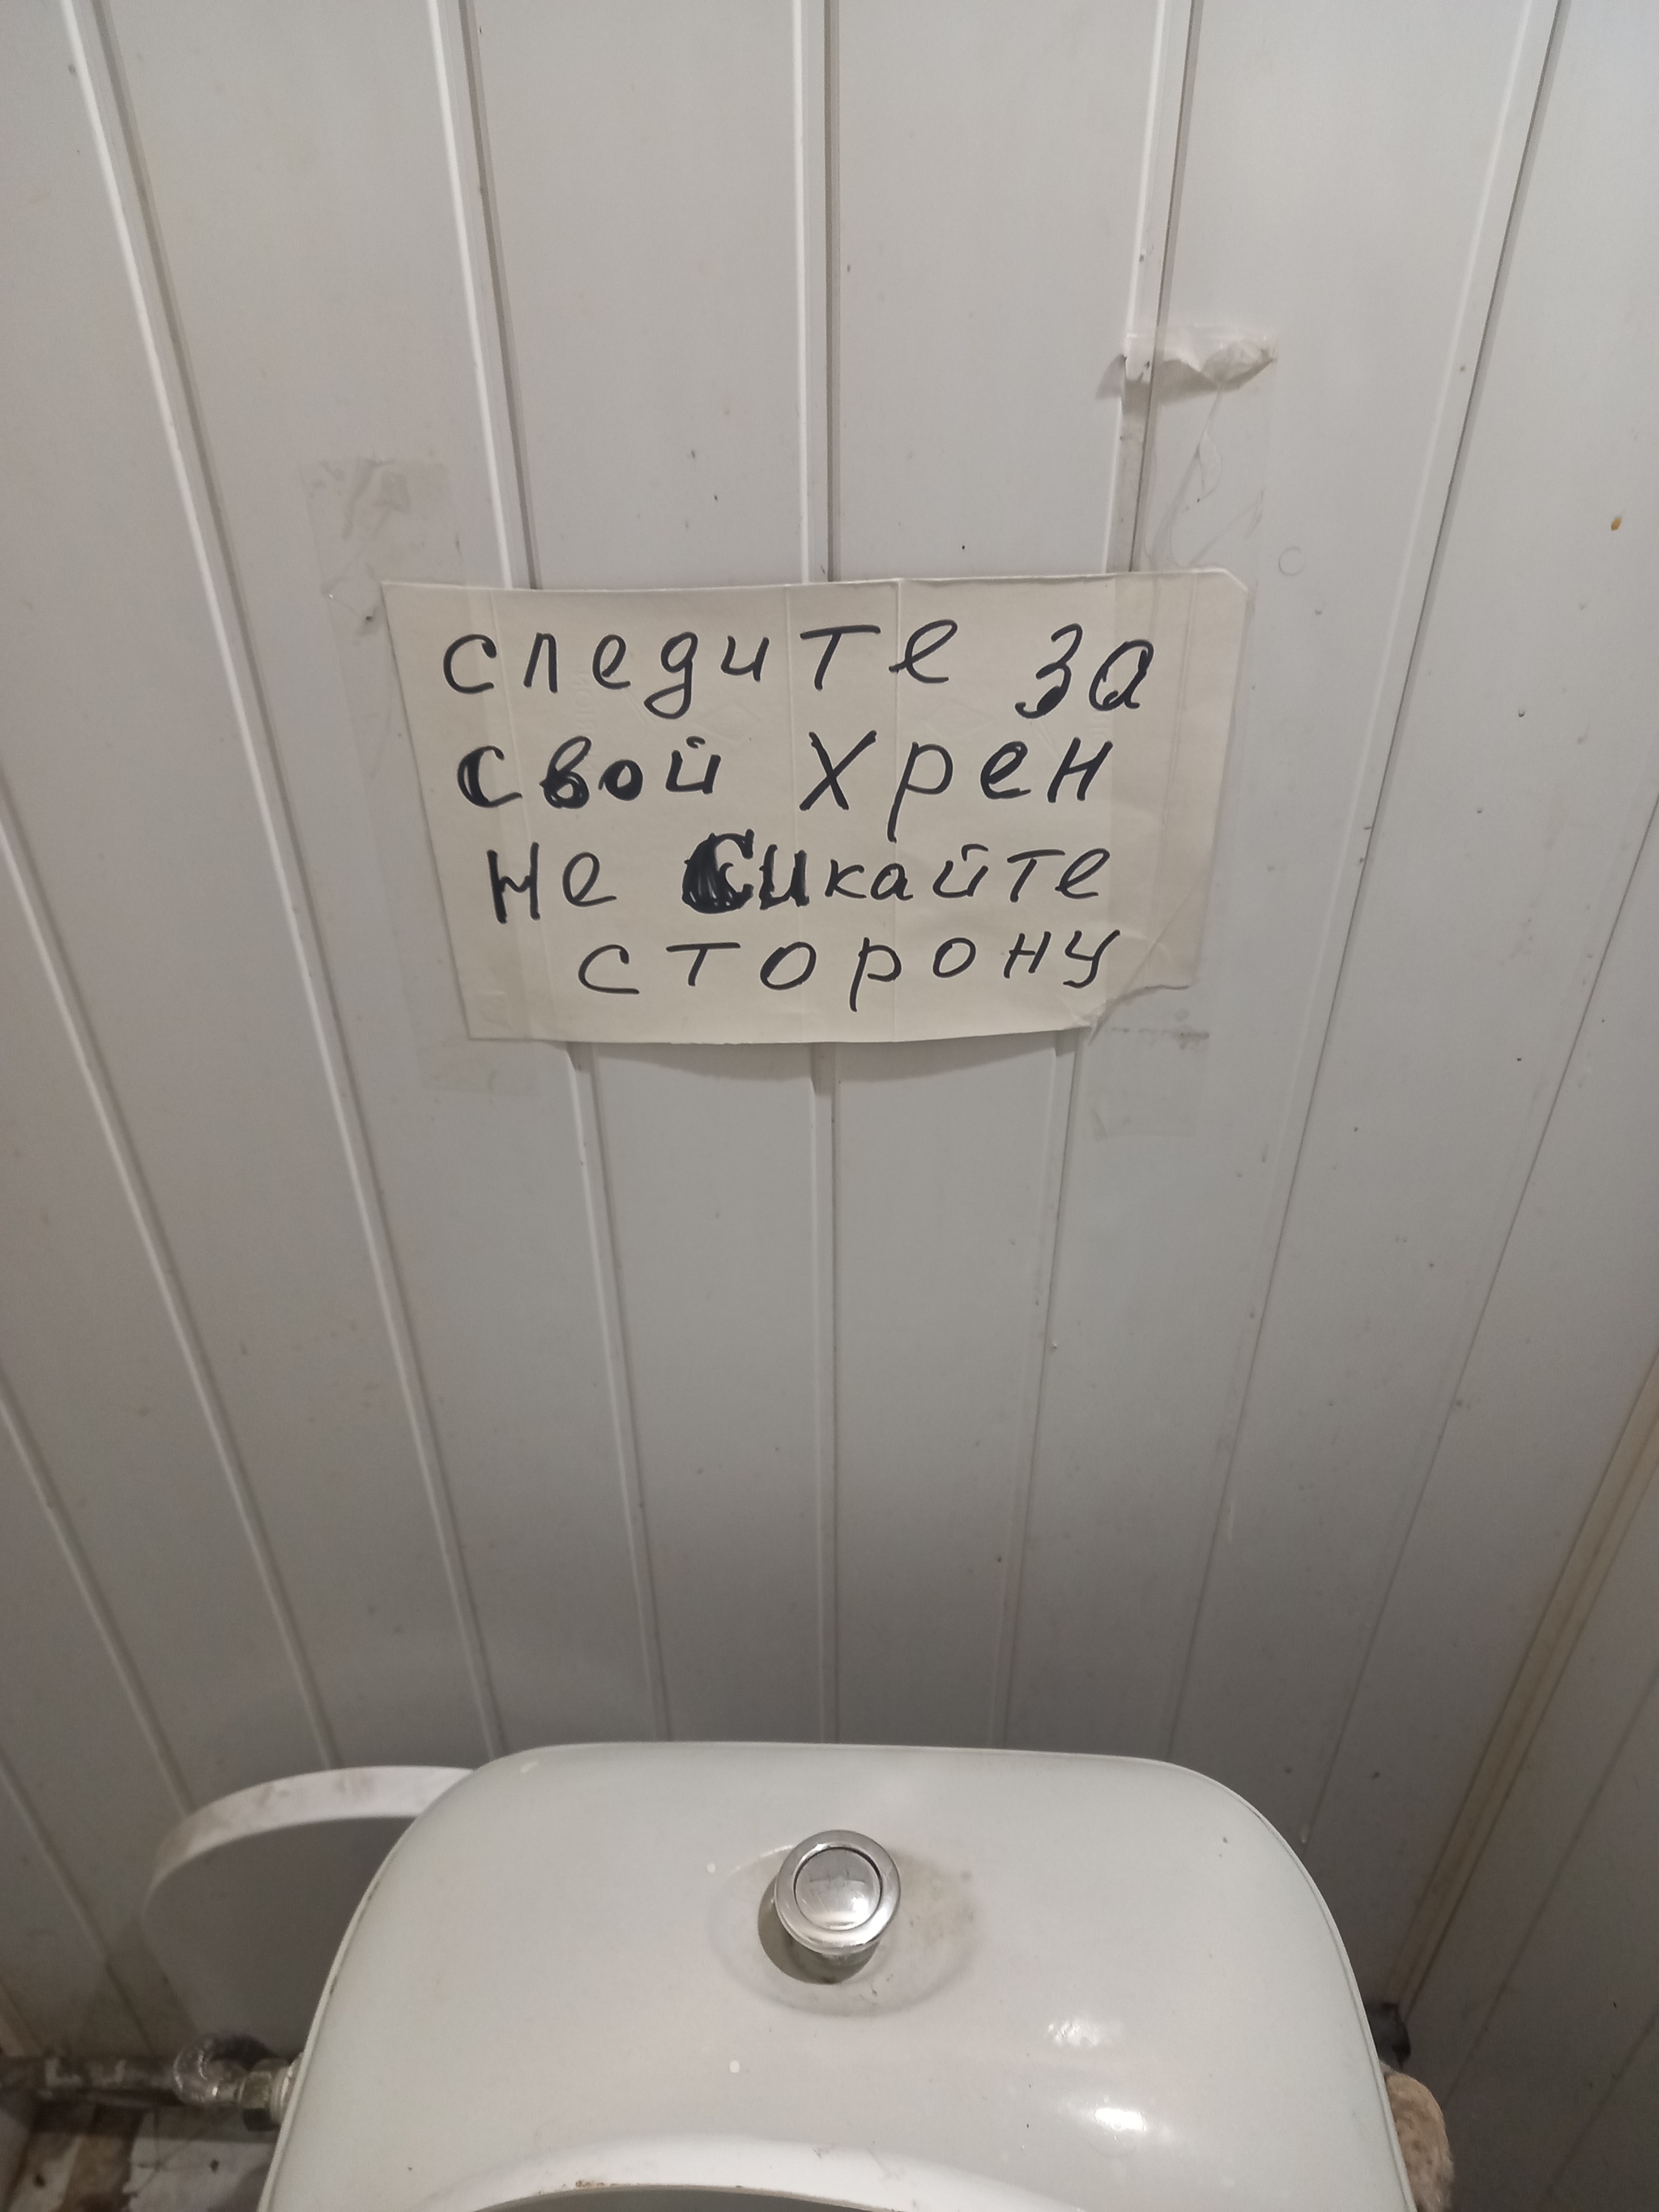 следите за
свой хрен
не сикайте
сторону